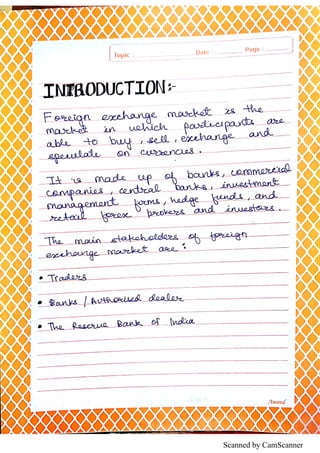 Topic : Date : Page :
INTRODUCTION:-
Foreign exchange market is the
market in which participants are
able to buy, sell, exchange and
speculate on currencies.
It is made up of banks, commercial
companies, central banks, investment
management firms, hedge funds, and
retail forex brokers and investors.
The main stakeholders of foreign
exchange market are :
• Traders
• Banks / Authorised dealer
• The Reserve Bank of India
Anand
Scanned by CamScanner